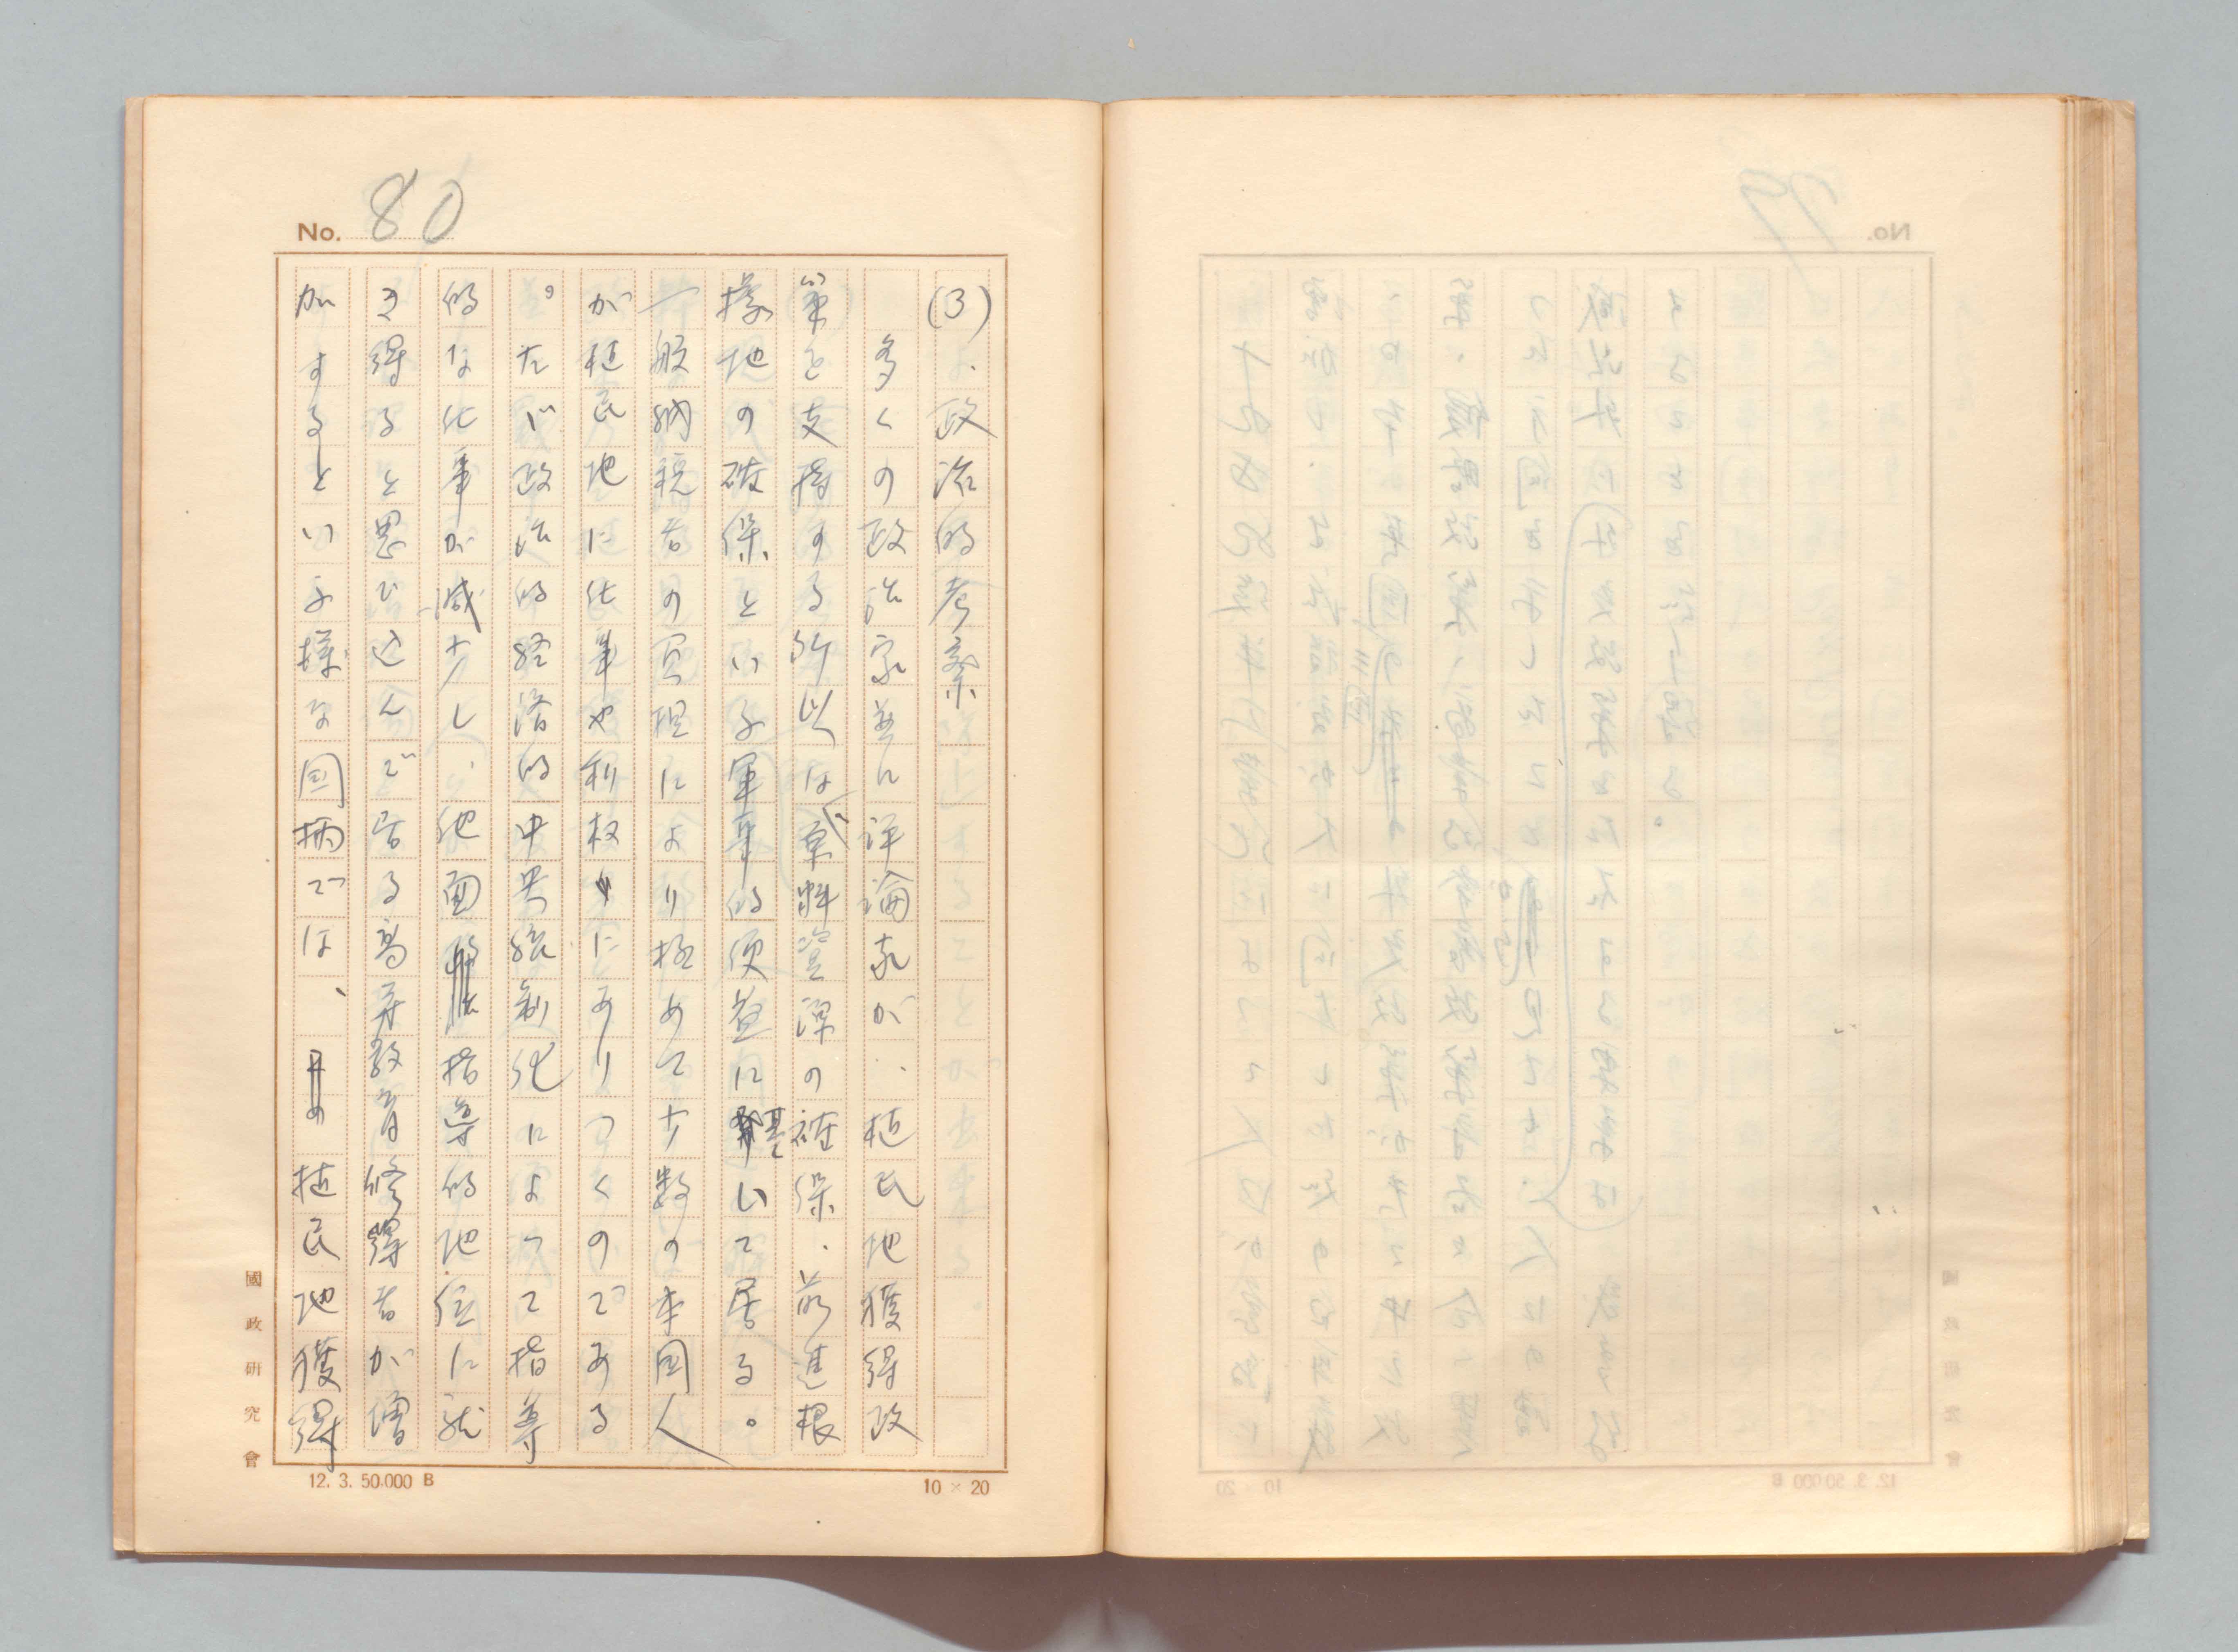 No. 80
(3)、政治的考察
多くの政治家並に評論家が、植民地獲得政
策を支持する所以は、原料資源の確保、前進根
據地の確保といふ軍事的便益に基いて居る。
一般納税者の負担により極めて少数の本国人
が植民地に仕事や利权にありつくのである
。たゞ政治的経済的中央統制化によって指導
的な仕事が減少し、他面指導的地位に就
き得ると思ひ込んで居る高等教育修得者が増
加するといふ様な国柄では、植民地獲得
國政研究會
12. 3. 50.000 B
10 × 20